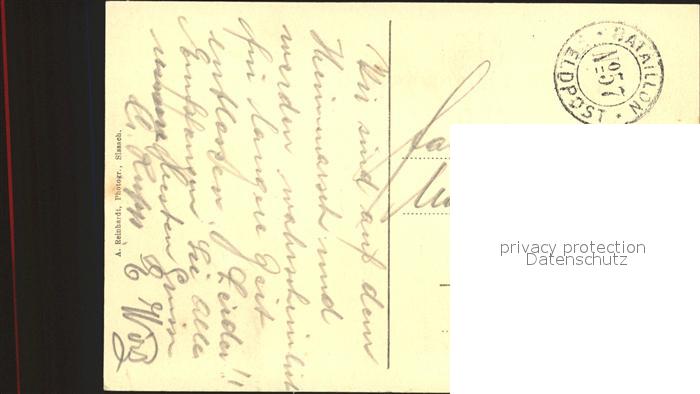 Wir sind auf dem
Heimmarsch und
werden wahrscheinlich
für längere Zeit
entlassen. Leider!!
Empfangen Sie alle
unsere besten Grüsse
BATAILLON
No 57
FELDPOST
A. Reinhardt, Photogr., Sissach.
privacy protection
Datenschutz